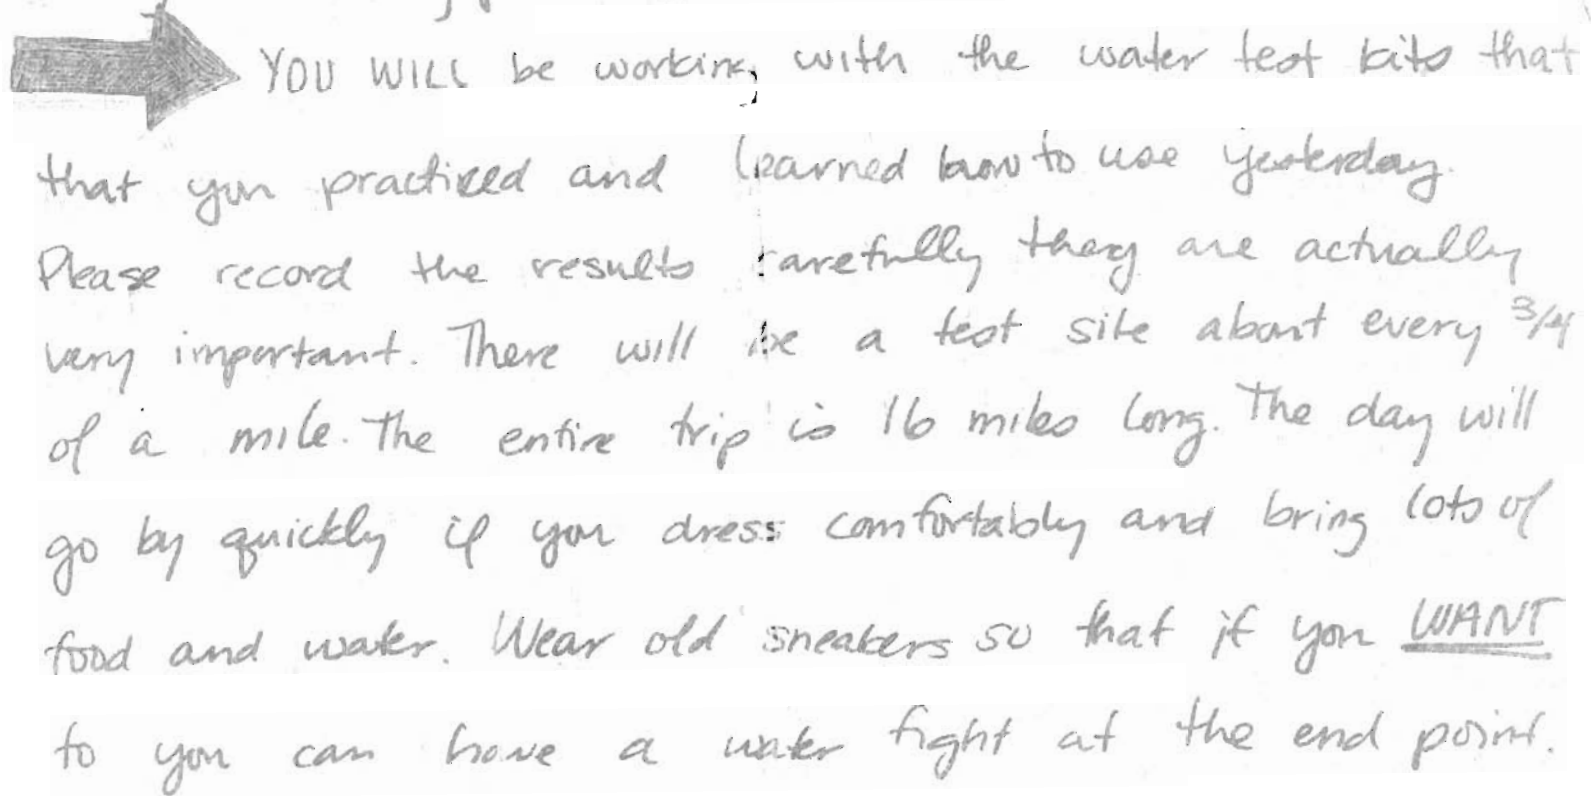 YOU WILL be working with the water test kits that
that you practiced and learned how to use yesterday.
Please record the results carefully they are actually
very important. There will be a test site about every 3/4
of a mile. The entire trip is 16 miles long. The day will
go by quickly if you dress comfortably and bring lots of
food and water. Wear old sneakers so that if you WANT
to you can have a water fight at the end point.